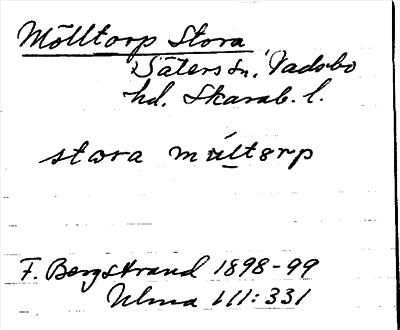 Mölltorp Stora
Säters sn, Vadsbo
hd. Skarab. l.
stora múltorp
F. Bergstrand 1898-99
Ulma 111:331